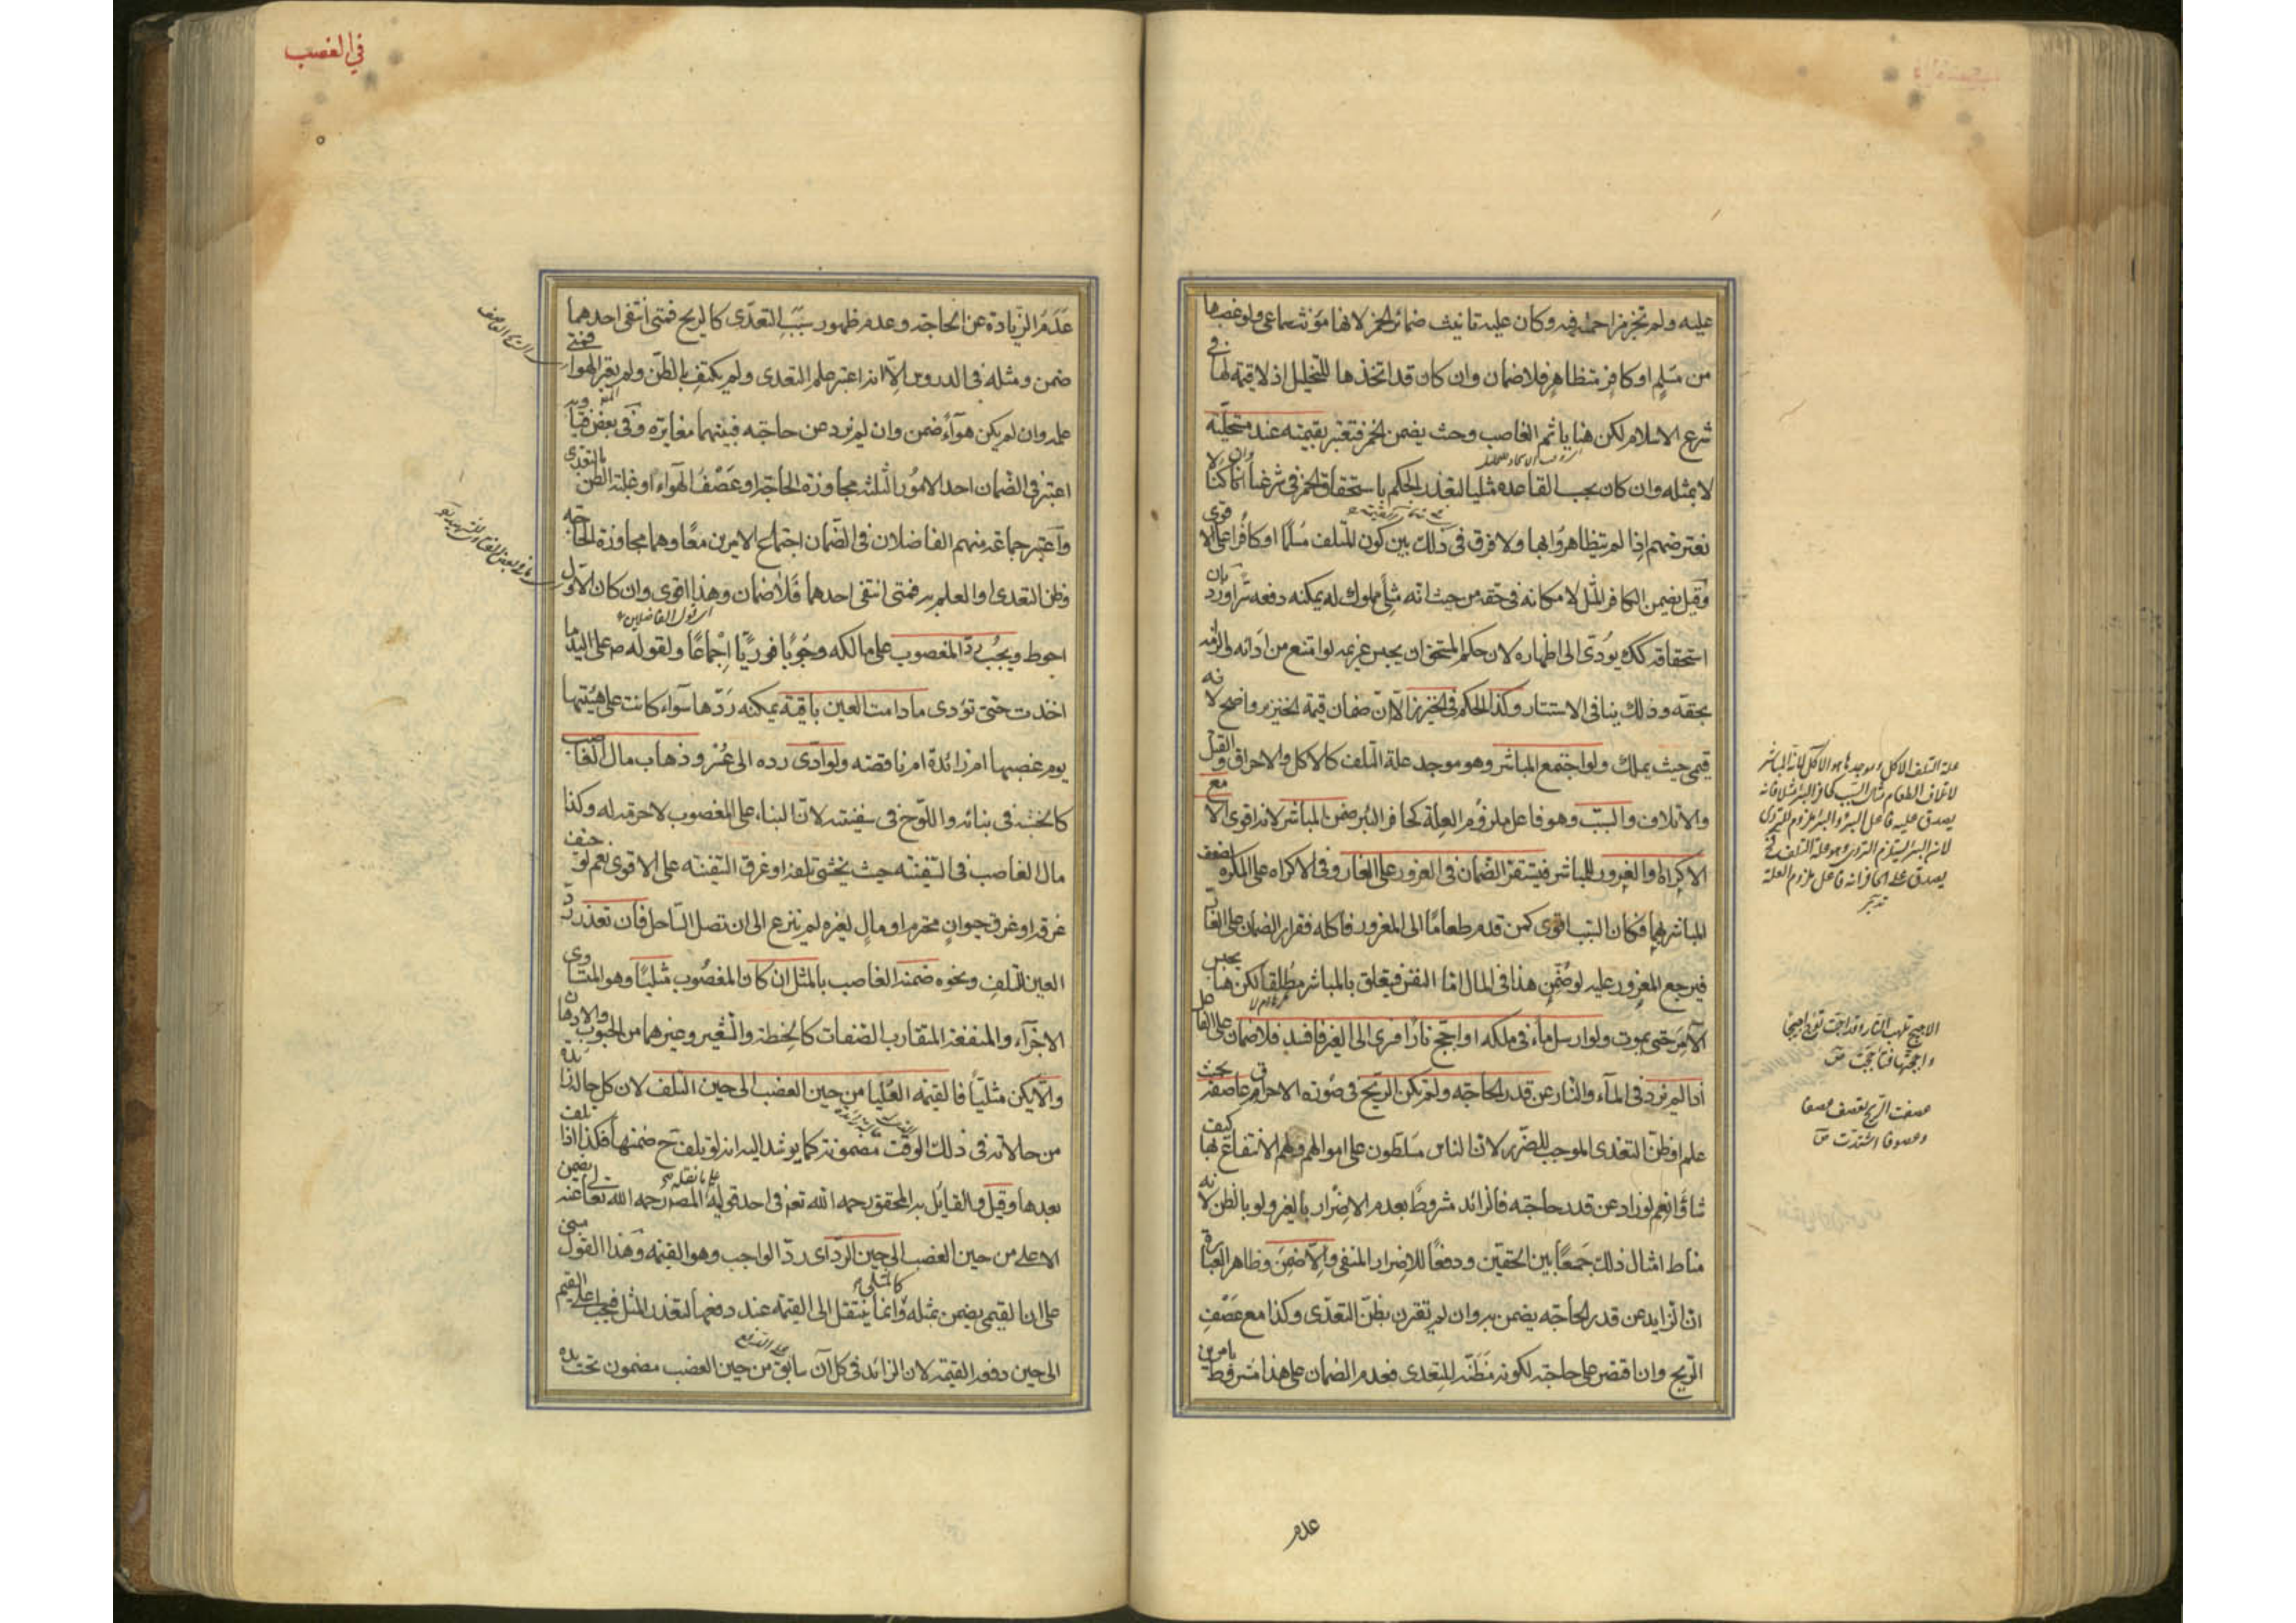 عليه ولم تخرج مزاحمته فيه وكان عليه تانيث ضمائر الخمر لانها مؤنث سماعي ولو غصبها
من مسلم او كافر متظاهر فلا ضمان وان كان قد اتخذها للتخليل اذ لا قيمة لها في
شرع الاسلام لكن هنا ياثم الغاصب وحيث يضمن الخمر فتعتبر بقيمته عند مستحليه
لا بمثله وان كان بحسب القاعدة مثليا لتعذر الحكم باستحقاق الخمر في شرعنا وان كنا لا
نعترضهم اذا لم يتظاهروا بها ولا فرق في ذلك بين كون المتلف مسلما او كافرا على الاقوى
وقيل يضمن الكافر المثل لامكانه في حقه من حيث انه مثلي مملوك له يمكنه دفعه سرا ورد بان
استحقاقه كذلك يؤدى الى اظهاره لان حكم المستحق ان يحبس غريمه لو امتنع من ادائه والزامه
بحقه وذلك ينافي الاستتار وكذا الحكم في الخنزير الا ان ضمان قيمة الخنزير واضح لانه
قيمى حيث يملك ولو اجتمع المباشر وهو موجد علة التلف كالاكل والاحراق والقتل
والاتلاف والسبب وهو فاعل ملزوم العلة كحافر البئر ضمن المباشر لانه اقوى الا مع
الاكراه والغرور للمباشر فيستقر الضمان في الغرور على الغار وفي الاكراه على المكره لضعف
المباشر بهما فكان السبب اقوى كمن قدم طعاما الى المغرور فاكله فقرار الضمان على الغار
فيرجع المغرور عليه لو ضمن هذا في المال اما النفس فيتعلق بالمباشر مطلقا لكن هنا يحبس
الآمر حتى يموت ولو ارسل ماء في ملكه او اجج نارا فسرى الى الغير فافسد فلا ضمان على الفاعل
اذا لم يزد في الماء والنار عن قدر الحاجة ولم تكن الريح في صورة الاحراق عاصفة بحيث
علم او ظن التعدى الموجب للضرر لان الناس مسلطون على اموالهم ولهم الانتفاع بها كيف
شاؤا نعم لو زاد عن قدر حاجته فالزائد مشروط بعدم الاضرار بالغير ولو بالظن لانه
مناط امثال ذلك جمعا بين الحقين ودفعا للاضرار المنفى والا ضمن وظاهر العبارة
ان الزايد عن قدر الحاجة يضمن به وان لم تقترن بظن التعدى وكذا مع عصف
الريح وان اقتصر على حاجته لكونه مظنة للتعدى فعدم الضمان على هذا مشروط بامرين
علة التلف الاكل وموجدها هو الآكل
يصدق عليه فاعل البئر والبئر ملزوم للتردى
يصدق على الحافر انه فاعل ملزوم العلة
تدبر
عصفت الريح تعصف عصفا
وعصوفا اشتدت ص
عدم
في الغصب
عدم الزيادة عن الحاجة وعدم ظهور سبب التعدى كالريح فمتى انتفى احدهما
ضمن ومثله في الدروس الا انه اعتبر علم التعدى ولم يكتف بالظن ولم يعتبر الهواء فمتى
علم وان لم يكن هواء ضمن وان لم يزد عن حاجته فبينهما مغايرة وفي بعض فتاويه
اعتبر في الضمان احد الامور الثلثة مجاوزة الحاجة او عصف الهواء او غلبة الظن بالتعدى
واعتبر جماعة منهم الفاضلان في الضمان اجتماع الامرين معا وهما مجاوزة الحاجة
وظن التعدى او العلم به فمتى انتفى احدهما فلا ضمان وهذا اقوى وان كان الاول
احوط ويجب رد المغصوب على مالكه وجوبا فوريا اجماعا ولقوله ص على اليد ما
اخذت حتى تؤدى مادامت العين باقية يمكنه ردها سواء كانت على هيئتها
يوم غصبها ام زائدة ام ناقصة ولو ادى رده الى عسر وذهاب مال الغاصب
كالخشبة في بنائه واللوح في سفينته لان البناء على المغصوب لا حرمة له وكذا
مال الغاصب في السفينة حيث يخشى تلفه او غرق السفينة على الاقوى نعم لو خيف
غرقه او غرق حيوان محترم او مال لغيره لم ينزع الى ان تصل الساحل فان تعذر رد
العين لتلف ونحوه ضمنه الغاصب بالمثل ان كان المغصوب مثليا وهو المتساوى
الاجزاء والمنفعة المتقارب الصفات كالحنطة والشعير وغيرهما من الحبوب والادهان
والا يكن مثليا فالقيمة العليا من حين الغصب الى حين التلف لان كل حالة زائدة
من حالاته في ذلك الوقت مضمونة كما يرشد اليه انه لو تلف ح ضمنها فكذا اذا تلف
بعدها وقيل والقائل به المحقق رحمه الله تعم في احد قوليه على ما نقله المصر رحمه الله تعالى عنه يضمن
الاعلى من حين الغصب الى حين الرد اى رد الواجب وهو القيمة وهذا القول مبنى
على ان القيمى يضمن بمثله كالمثلى وانما ينتقل الى القيمة عند دفعها لتعذر المثل فيجب اعلى القيم
الى حين دفع القيمة لان الزائد في كل آن سابق من حين الغصب مضمون تحت يده